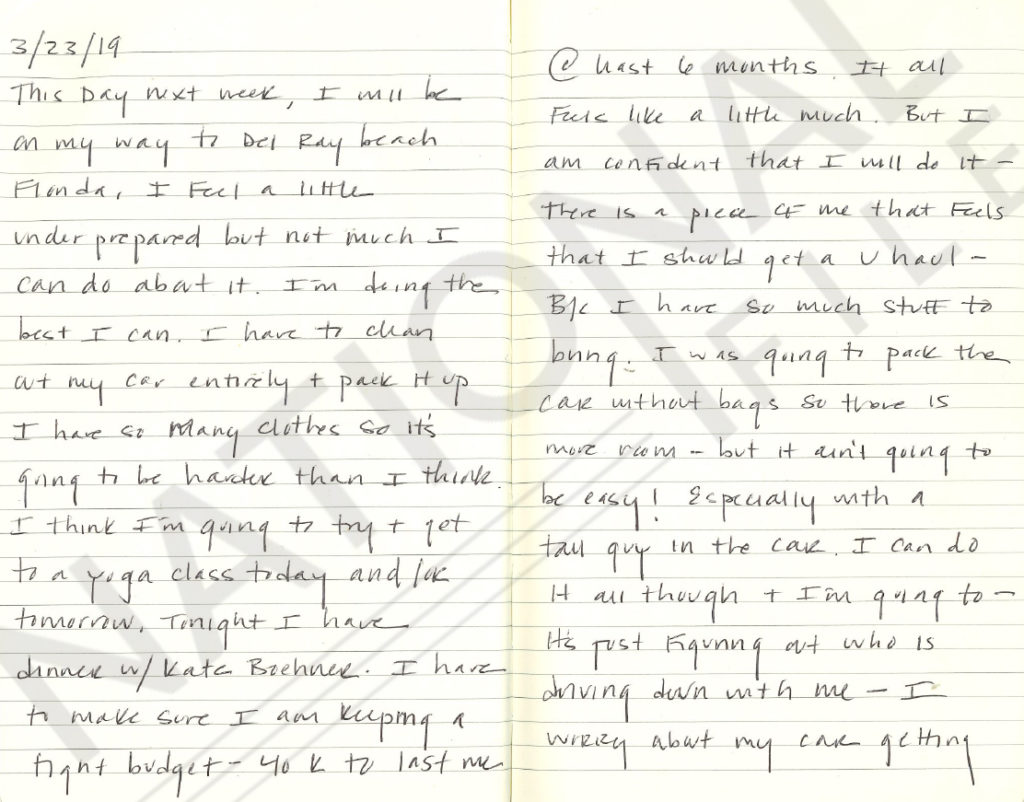 3/23/19
This Day next week, I will be
on my way to Del Ray beach
Florida, I Feel a little
under prepared but not much I
can do about it. I'm doing the
best I can. I have to clean
out my car entirely + pack it up
I have so many clothes so it's
going to be harder than I think.
I think I'm going to try + get
to a yoga class today and
tomorrow. Tonight I have
dinner w/ Kate Boehner. I have
to make sure I am keeping a
tight budget - 40 K to last me
@ least 6 months. It all
Feels like a little much. But I
am confident that I will do it -
There is a piece of me that Feels
that I should get a U haul -
B/c I have so much stuff to
bring. I was going to pack the
car without bags so there is
more room - but it ain't going to
be easy! Especially with a
tall guy in the car. I can do
it all though + I'm going to -
It's just Figuring out who is
driving down with me - I
worry about my car getting
NATIONAL
FILE